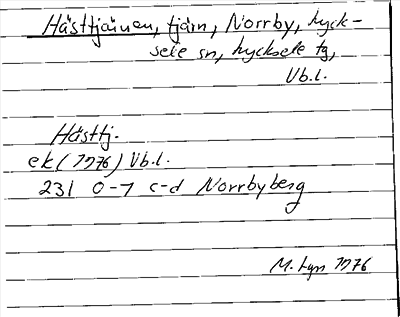 Hästtjärnen, tjärn, Norrby, Lyck-
sele sn, Lycksele tg,
Vb.l.
Hästtj.
ek (1976) Vb.l.
231 0-1 c-d Norrbyberg
M. Lyn 1976